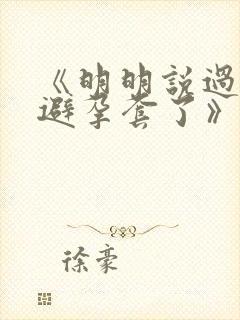 《明明説過
避孕套了》
徐豪